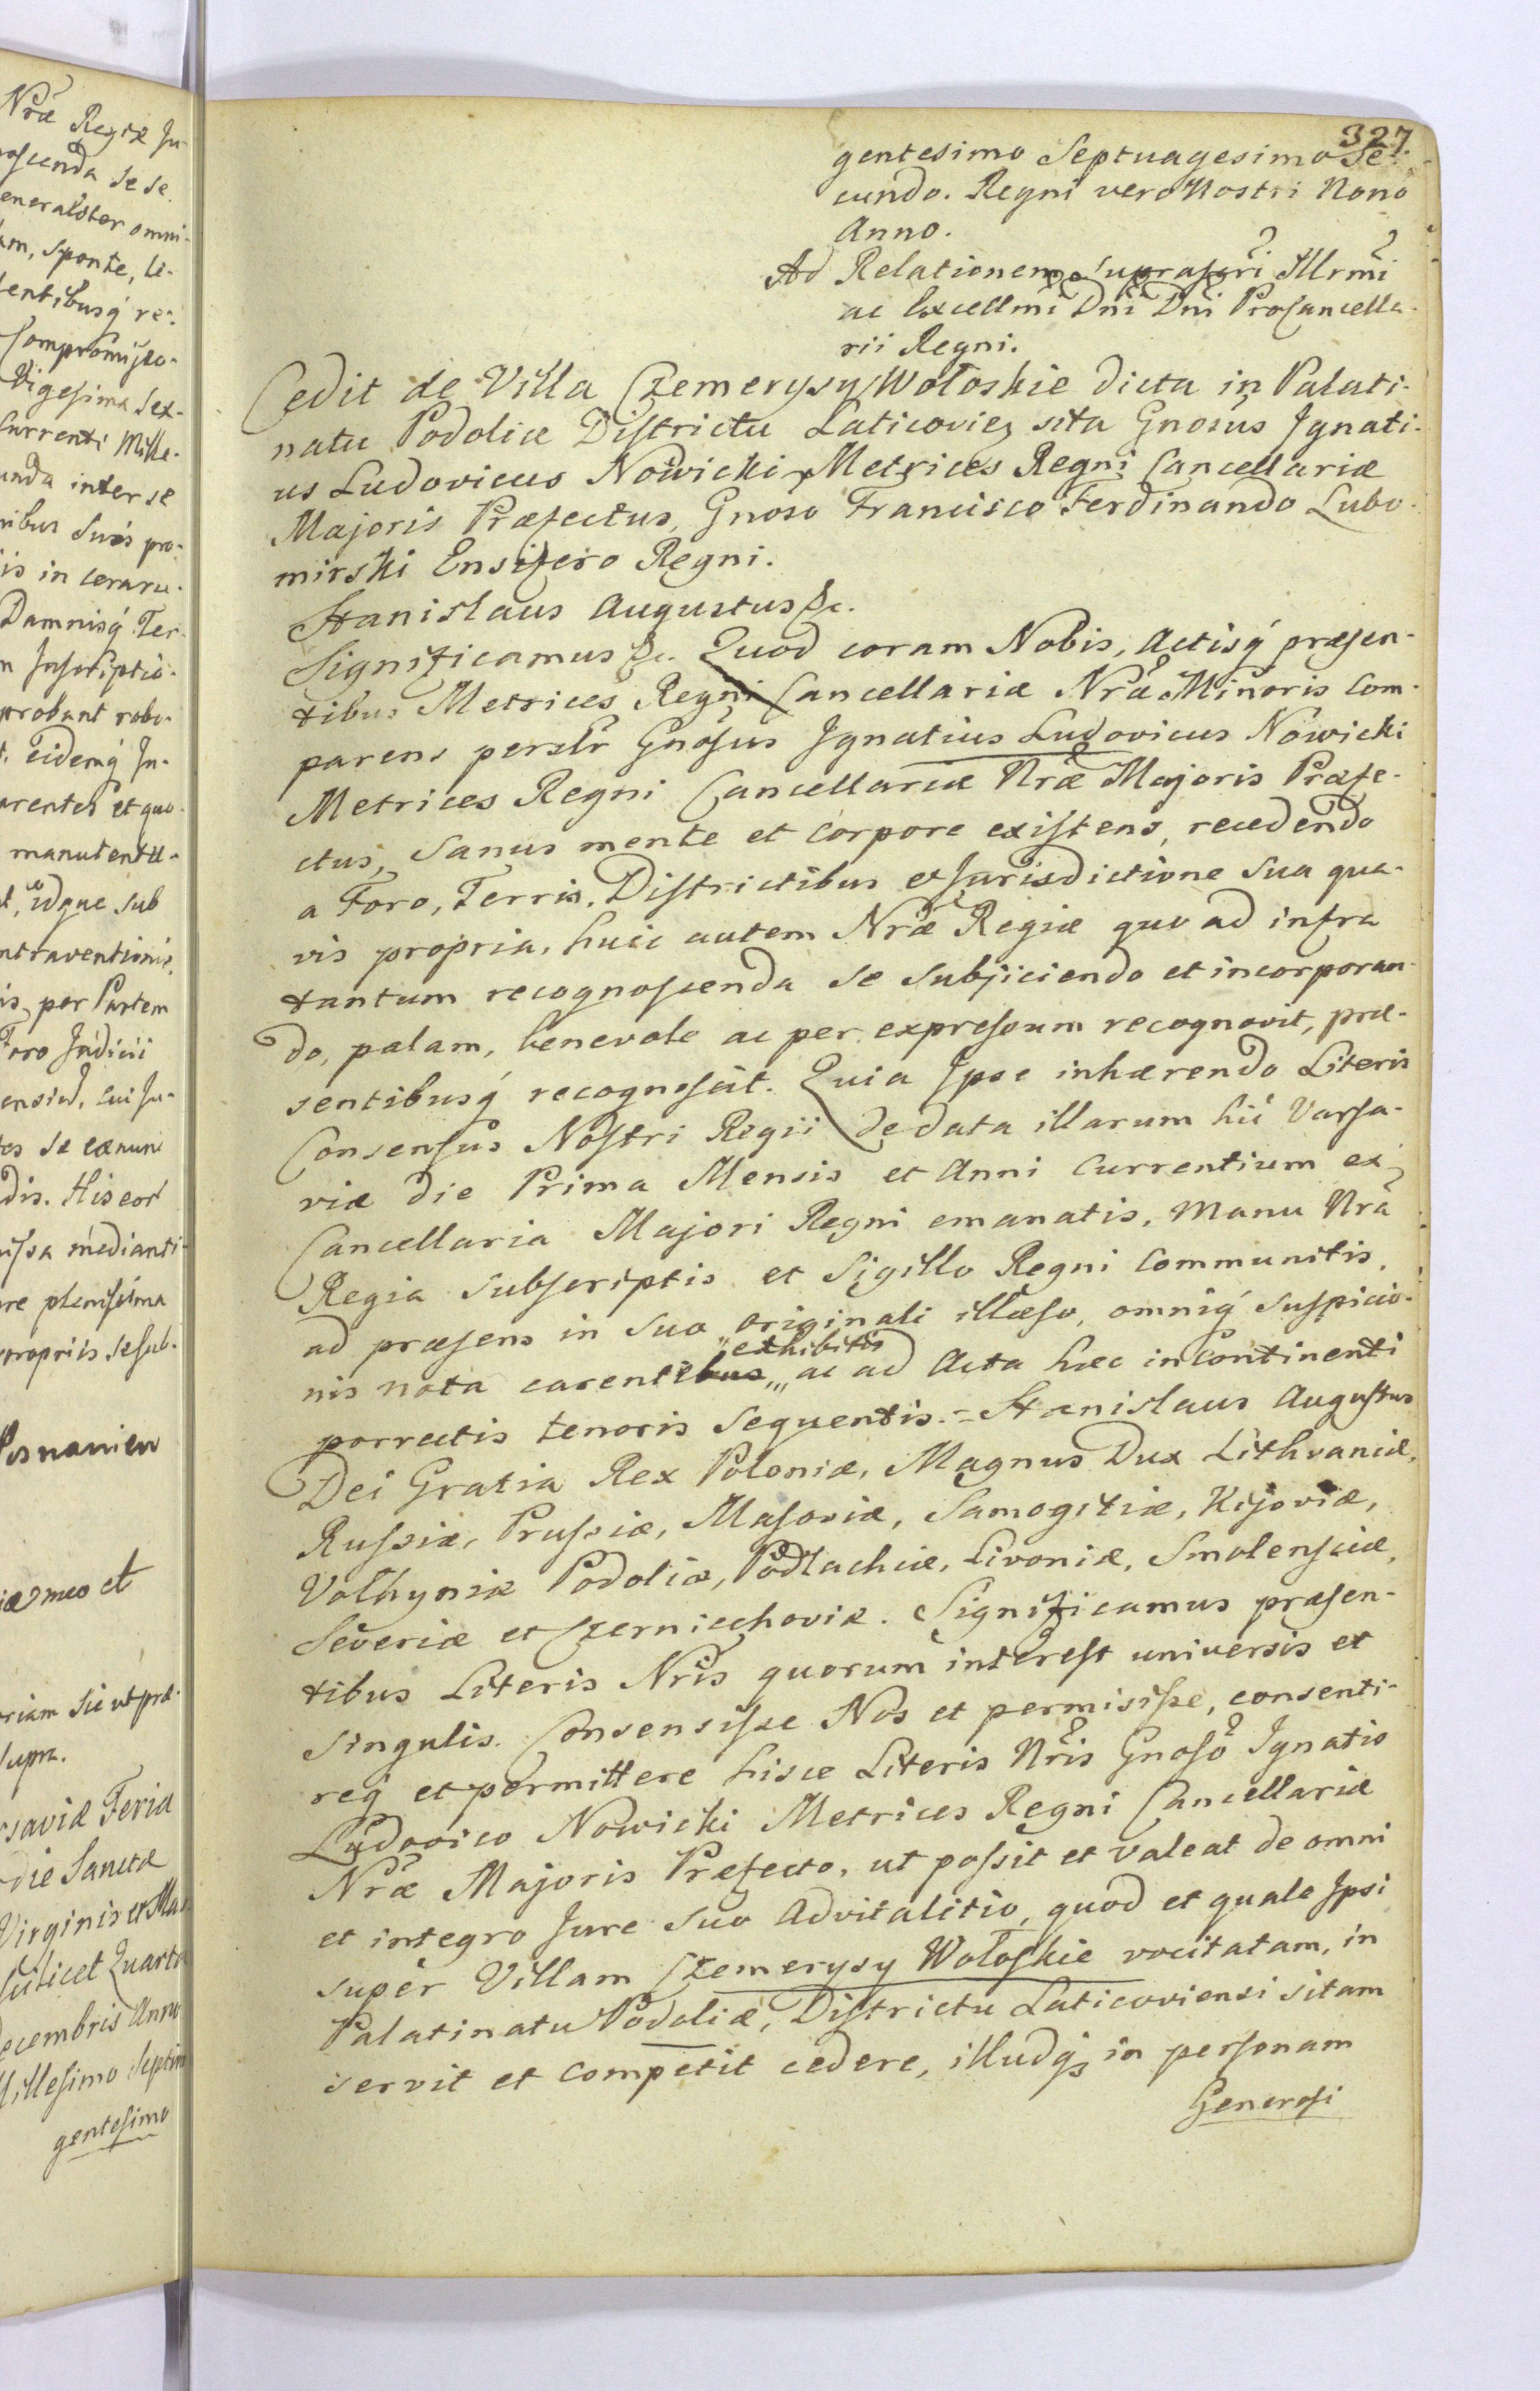 Nrae Regiae Ju-
noscenda se se
eneraliter omni-
am, sponte, li-
sentibusq́ re-
Compromisso-
Vigesima sex-
Currenti Mille-
unda inter se
nibus suis pro-
is in ceraru-
Damnisq́ Ter-
m Inscriptio-
probant robo-
t. Eidemq́ In-
arentes et quo-
manutentu-
t, idque sub
ntraventionis,
is, per Partem
Foro Judicii
ensied, cui Ju-
tes se ex nunc
dis. His eor
issa medianti-
re plenissima
propriis se sub-
Posnanien
iae meo et
riam sic ut prae-
supra.
rsaviae Feria
die Sanctae
Virginis et Mar
scilicet Quarta
Decembris Anno
Millesimo Septin
gentesimo
327.
gentesimo Septuagesimo Se-
cundo. Regni vero Nostri Nono
Anno.
Ad Relationem suprascri Illrmi
ac Excellmi Dni Dni ProCancella-
rii Regni.
Cedit de Villa Czemerysy Wołoskie dicta in Palati-
natu Podoliae Districtu Laticovien sita Gnosus Ignati-
us Ludovicus Nowicki Metrices Regni Cancellariae
Majoris Praefectus, Gnoso Francisco Ferdinando Lubo-
mirski Ensifero Regni.
Stanislaus Augustus &c.
Significamus &c. Quod coram Nobis, Actisq́ praesen-
tibus Metrices Regni Cancellariae Nrae Minoris Com-
parens perslr Gnosus Ignatius Ludovicus Nowicki
Metrices Regni Cancellariae Nrae Majoris Praefe-
ctus, Sanus mente et corpore existens, recedendo
a Foro, Terris, Districtibus et Jurisdictione sua qua-
vis propria, huic autem Nrae Regiae quo ad infra
tantum recognoscenda se subjiciendo et incorporan-
do, palam, benevole ac per expressum recognovit, prae-
sentibusq́ recognoscit. Quia Ipse inhaerendo Literis
Consensus Nostri Regii de data illarum hic Varsa-
viae die Prima Mensis et Anni Currentium ex
Cancellaria Majori Regni emanatis, Manu Nra
Regia subscriptis et Sigillo Regni Communitis,
ad praesens in suo originali illaeso, omniq́ suspicio-
nis nota carentibus „exhibitis„ ac ad Acta haec in Continenti
porrectis tenoris sequentis. = Stanislaus Augustus
Dei Gratia Rex Poloniae, Magnus Dux Lithvaniae,
Russiae, Prussiae, Masoviae, Samogitiae, Kijoviae,
Volhyniae Podoliae, Podlachiae, Livoniae, Smolensciae,
Severiae et Czerniechoviae. Significamus praesen-
tibus Literis Nris quorum interest universis et
singulis. Consensisse Nos et permisisse, consenti-
req́ et permittere hisce Literis Nris Gnoso Ignatio
Ludovico Nowicki Metrices Regni Cancellariae
Nrae Majoris Praefecto, ut possit et valeat de omni
et integro Jure suo Advitalitio, quod et quale Ipsi
super Villam Czemerysy Wołoskie vocitatam, in
Palatinatu Podoliae, Districtu Laticoviensi sitam
servit et competit cedere, illudq́ in personam
Generosi